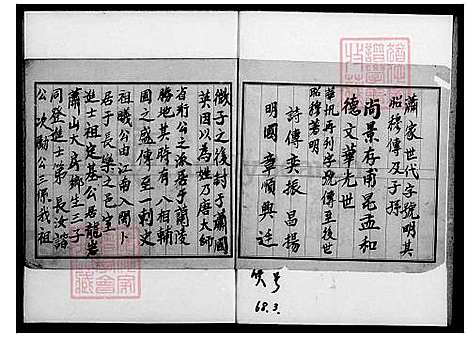 蕭家世代字號明其
昭穆傳及子孫
尚景存甫昆孟和
德文華光世
再列字號傳至後世
昭穆著明
詩傳奕振昌揚
明國章順興廷
微子之後封于蕭國
英因以為姓乃唐太師
公之派居于蘭陵
勝地其時有八相輔
國之盛傳至一刺史
祖曉公由江南入閩卜
居于長樂之邑室
進士祖定基公居龍岩
蕭山大房鄉生三子
同登進士第長汝諧
公次勵公三原我祖
68.3.